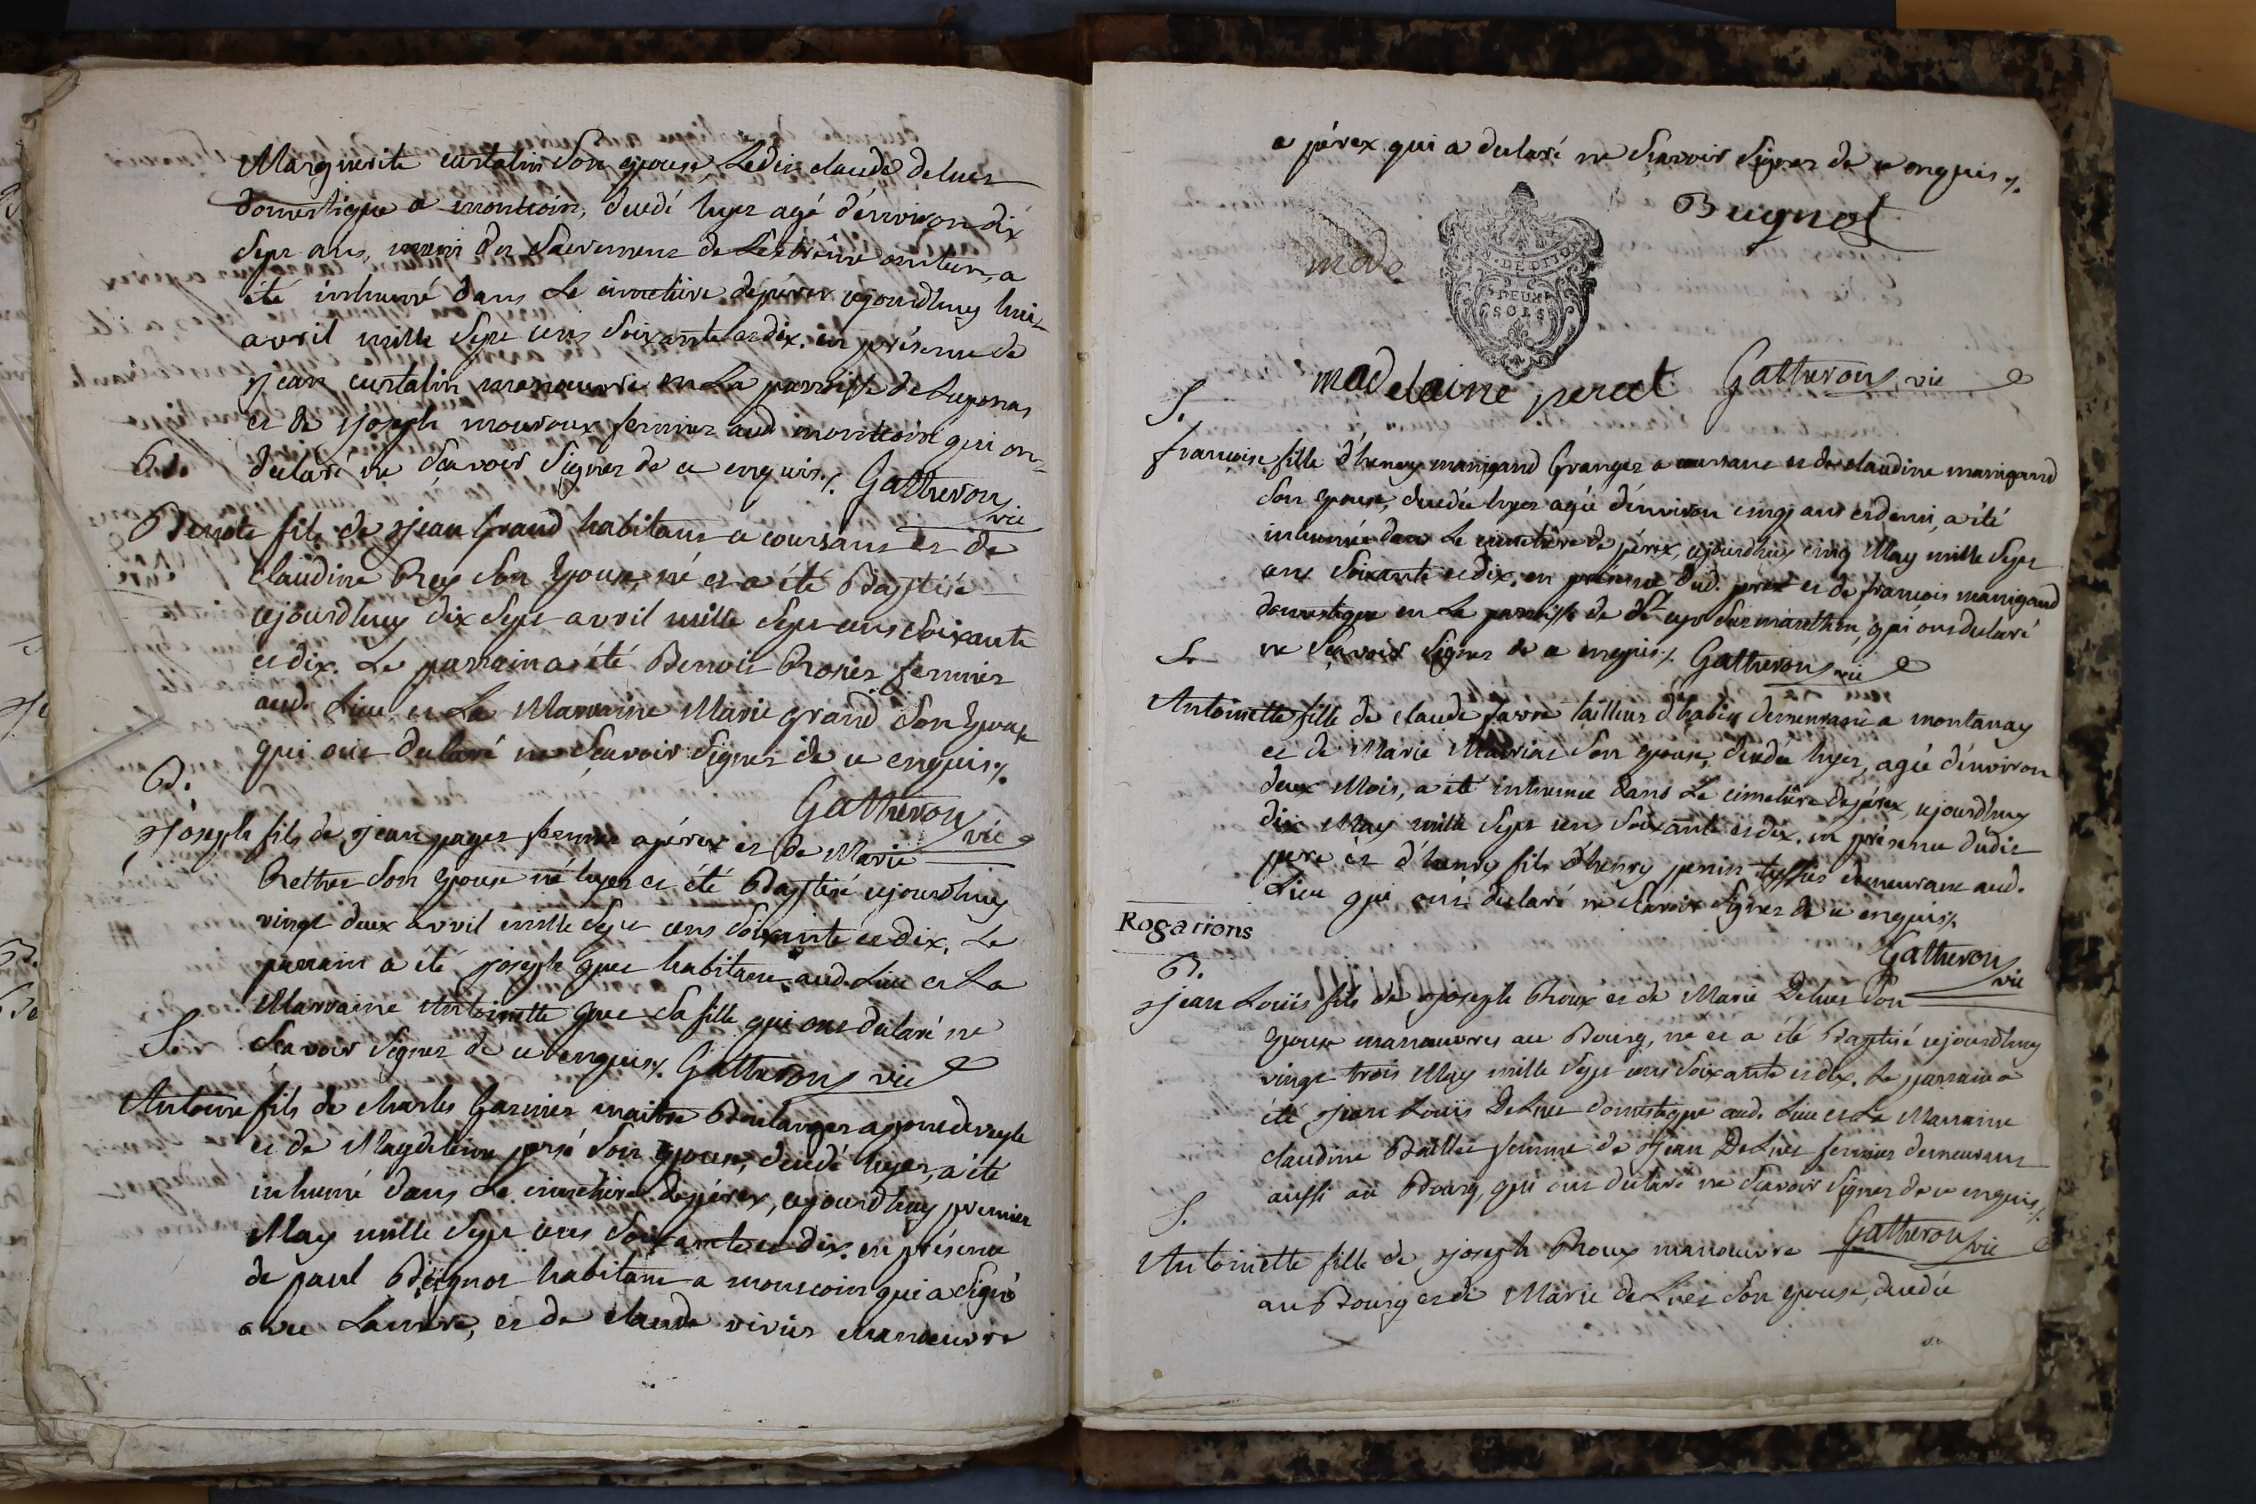 Marguerite curtalin son epouse, Ledit claude deluer
domestique a montcoin, decedé hyer agé d'environ dix
Sept ans, muni des Sacremens de L'extrême onction, a
été inhumé dans Le cimetière de perex cejourd'huy huit
avril mille Sept cens Soixante et dix. en présence de
jean curtalin, manoeuvre en La paroisse de Luponas
et de joseph mouroux fermier aud. montcoin qui ont
declaré ne Sçavoir Signer de ce enquis./. Gatheron vic
B.
Benoit fils de jean Grand habitant a coursant et de
claudine Rey Son Epouse, né et a été Baptisé
cejourd'huy dix Sept avril mille Sept cens Soixante
et dix. Le parrain a été Benoit Rosier fermier
aud. Lieu et La Marraine Marie grand Son Epouse
qui ont declaré ne Sçavoir Signer de ce enquis./.
Gatheron vic
B.
joseph fils de jean pages fermier a pérex et de Marie
Rether Son epouse né hyer et été Baptisé cejourd'huy
vingt deux avril mille Sept cens Soixante et dix, Le
parrain a été joseph guer habitant aud. Lieu et La
Marraine Antoinette guer sa fille qui ont declaré ne
Sçavoir Signer de ce enquis./. Gatheron vic
S.
Antoine fils de charles Garnier maitre Boulanger a pondeveyle
et de Magdeleine persé Son epouse, decedé hyer, a été
inhumé dans Le cimetière de pérex, cejourd'huy premier
May mille Sept cens Soixante et dix. en présence
de paul Bugnot habitant a montcoin qui a Signé
avec La mere, et de claude vivier Manoeuvre
a pérex qui a declaré ne Sçavoir Signer de ce enquis./.
Bugnot
N. DE DIJON
DEUX
SOLS
made
madelaine percet Gatheron vic
S.
françoise fille d'henry manigand Granger a coursant et de claudine manigand
Son epouse, decedée hyer agée d'environ cinq ans et demi, a été
inhumée dans Le cimetière de pérex, cejourd'huy cinq May mille Sept
cens Soixante et dix. en présence dud. pere et de françois manigand
domestique en La paroisse de St cyr Sur menthon, qui ont declaré
ne Sçavoir Signer de ce enquis./. Gatheron vic
S.
Antoinette fille de claude favre tailleur d'habits demeurant a montanay
et de Marie Son epouse, decedée hyer, agée d'environ
deux Mois, a été inhumée dans Le cimetière de pérex, cejourd'huy
dix May mille Sept cens Soixante et dix. en présence dudit
pere et d'henry fils d'henry perrin tissier demeurant aud.
Lieu qui ont declaré ne Sçavoir Signer de ce enquis./.
Gatheron vic
Rogations
B.
jean Louis fils de joseph Roux et de Marie Deluer Son
epouse manoeuvres au Bourg, né et a été Baptisé cejourd'huy
vingt trois May mille Sept cens Soixante et dix. Le parrain a
été jean Louis DeLuer domestique aud. Lieu et La Marraine
claudine Baillet femme de jean DeLuer fermier demeurant
aussi au Bourg, qui ont declaré ne Sçavoir Signer de ce enquis./.
Gatheron vic
S.
Antoinette fille de joseph Roux manoeuvre
au Bourg et de Marie deLuer Son epouse, decedée